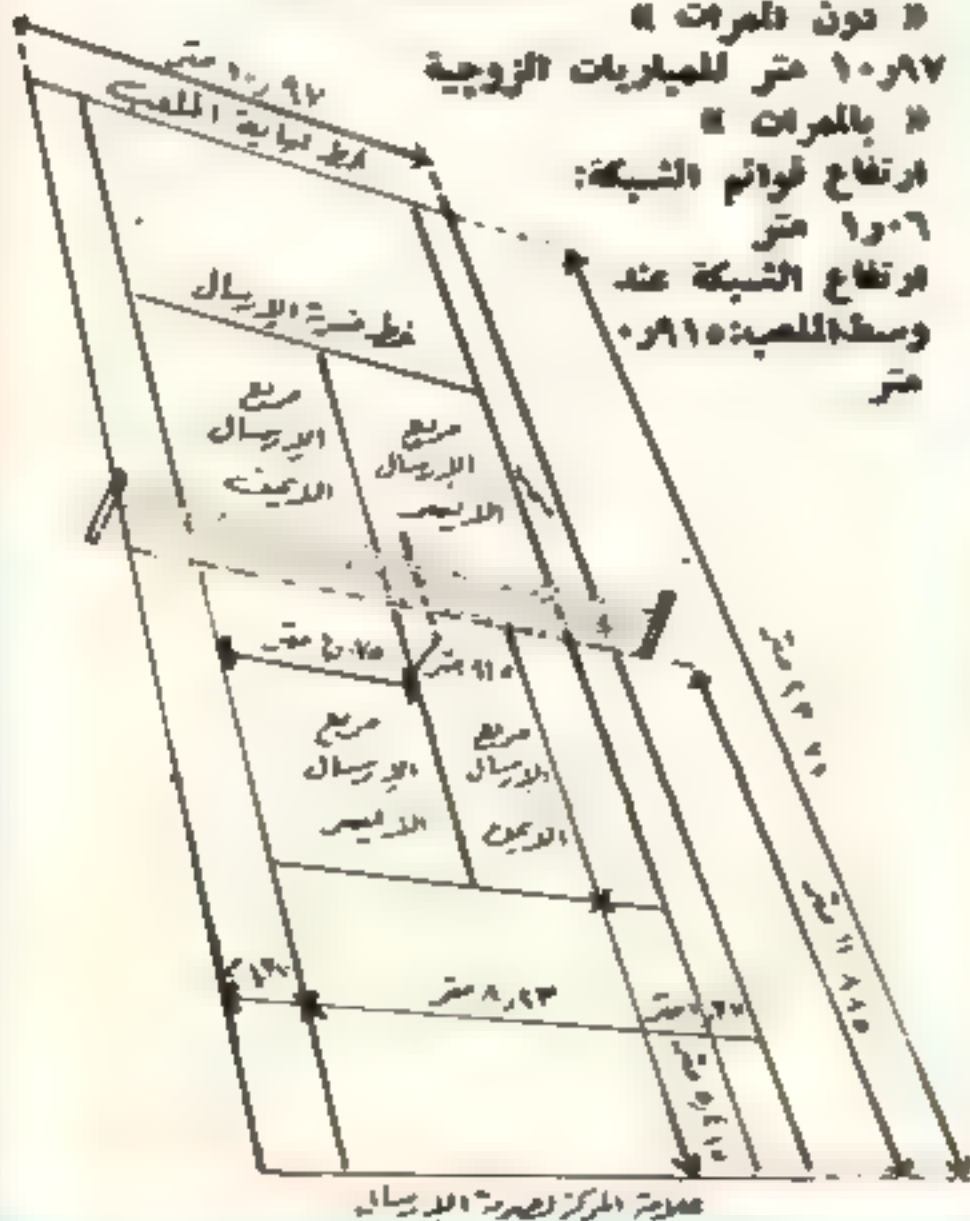 « دون الممرات »
١٠٫٩٧ متر للمباريات الزوجية
« بالممرات »
ارتفاع قوائم الشبكة:
١٫٠٦ متر
ارتفاع الشبكة عند
وسط الملعب: ٠٫٩١٥
متر
١٠٫٩٧ متر
خط نهاية الملعب
خط ضربة الإرسال
مربع
الإرسال
الأيمن
مربع
الإرسال
الأيسر
متر
٩١٥ متر
٢٣ ٧٥ متر
مربع
الإرسال
الأيسر
مربع
الإرسال
الأيمن
١١ ٨٨٥ متر
٨٫٢٣ متر
متر
علامة المركز لضربة الإرسال